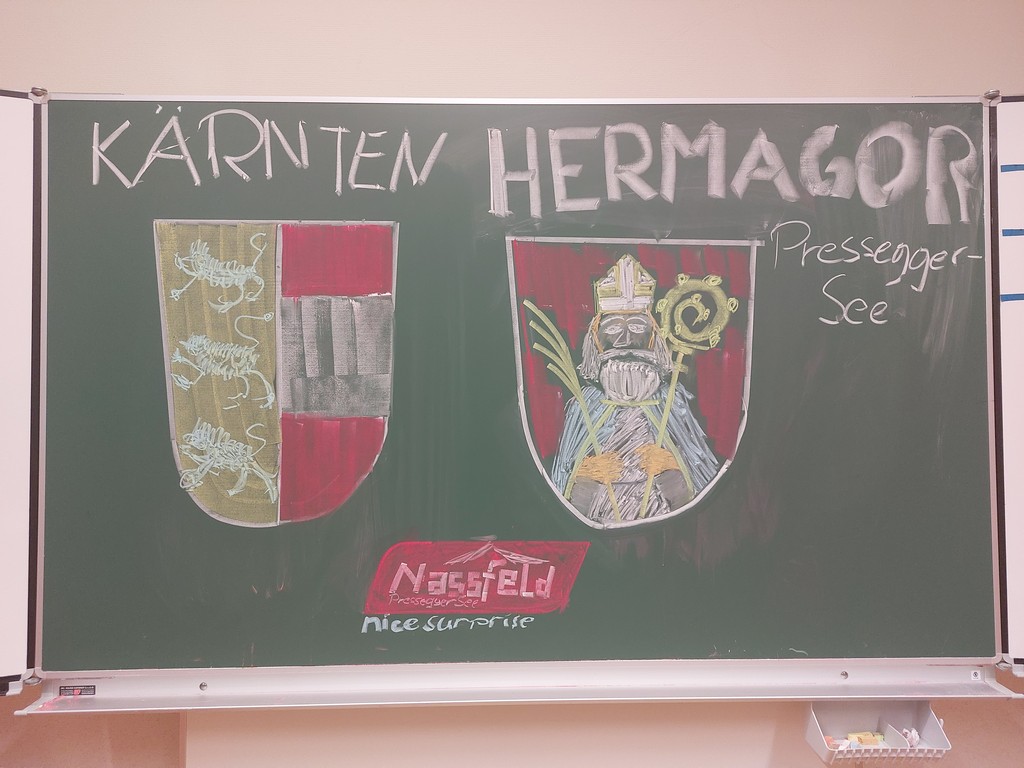 KÄRNTEN
HERMAGOR
Pressegger-
See
Nassfeld
Pressegger See
nice surprise